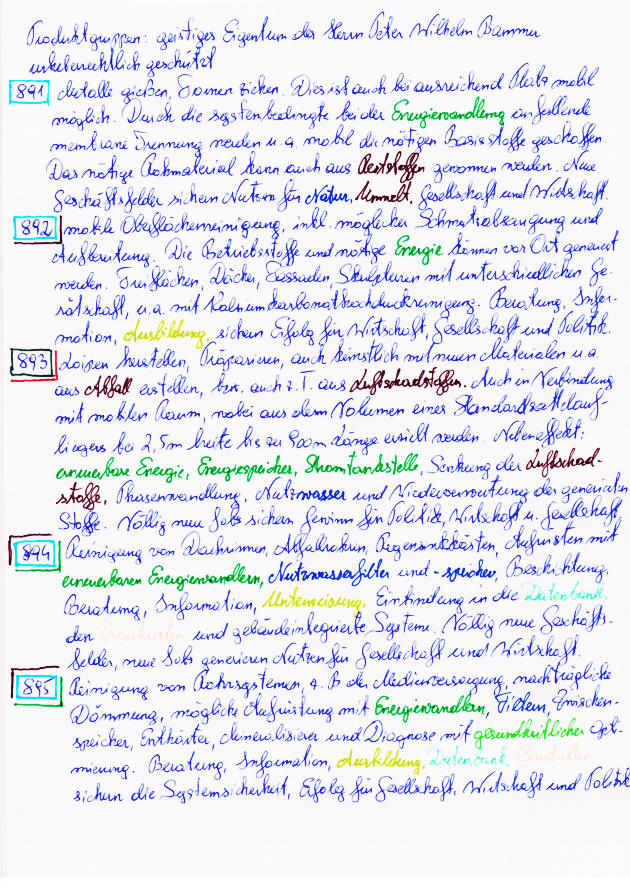 Produktgruppen: geistiges Eigentum des Herrn Peter Wilhelm Bammer
urheberrechtlich geschützt
891 Metalle gießen, Formen ziehen. Dies ist auch bei ausreichend Platz mobil
möglich. Durch die systembedingte bei der Energiewandlung anfallende
membrane Trennung werden u. a. mobil die nötigen Basisstoffe geschaffen.
Das nötige Rohmaterial kann auch aus Reststoffen gewonnen werden. Neue
Geschäftsfelder sichern Nutzen für Natur, Umwelt, Gesellschaft und Wirtschaft.
892 mobile Oberflächenreinigung, inkl. möglicher Schmutzabsaugung und
Aufbereitung. Die Betriebsstoffe und nötige Energie können vor Ort generiert
werden. Freiflächen, Dächer, Fassaden, Skulpturen mit unterschiedlichen Ge-
rätschaft, u.a. mit Kalziumkarbonathochdruckreinigung. Beratung, Infor-
mation, Ausbildung, sichern Erfolg für Wirtschaft, Gesellschaft und Politik.
893 Loipen herstellen, Präparieren, auch künstlich mit neuen Materialen u. a.
aus Abfall erstellen, bzw. auch z. T. aus Luftschadstoffen. Auch in Verbindung
mit mobilen Raum, wobei aus dem Volumen eines Standardsattelauf-
liegers bei 2,5m breite bis zu 900m Länge erzielt werden. Nebeneffekt:
erneuerbare Energie, Energiespeicher, Stromtankstelle, Senkung der Luftschad-
stoffe, Phasenwandlung, Nutzwasser und Wiederverwertung der generierten
Stoffe. Völlig neue Jobs sichern Gewinn für Politik, Wirtschaft u. Gesellschaft
894 Reinigung von Dachrinnen, Abfallrohren, Regensinkkästen, Aufrüsten mit
erneuerbaren Energiewandlern, Nutzwasserfilter und -speicher, Beschichtung.
Beratung, Information, Unterweisung, Einbindung in die Datenbank,
den Baukasten und gebäudeintegrierte Systeme. Völlig neue Geschäfts-
felder, neue Jobs generieren Nutzen für Gesellschaft und Wirtschaft.
895 Reinigung von Rohrsystemen, z. B. der Medienversorgung, nachträgliche
Dämmung, mögliche Aufrüstung mit Energiewandlern, Filtern, Zwischen-
speicher, Enthärter, Mineralisierer und Diagnose mit gesundheitlicher Opti-
mierung. Beratung, Information, Ausbildung, Datenbank, Baukasten
sichern die Systemsicherheit, Erfolg für Gesellschaft, Wirtschaft und Politik